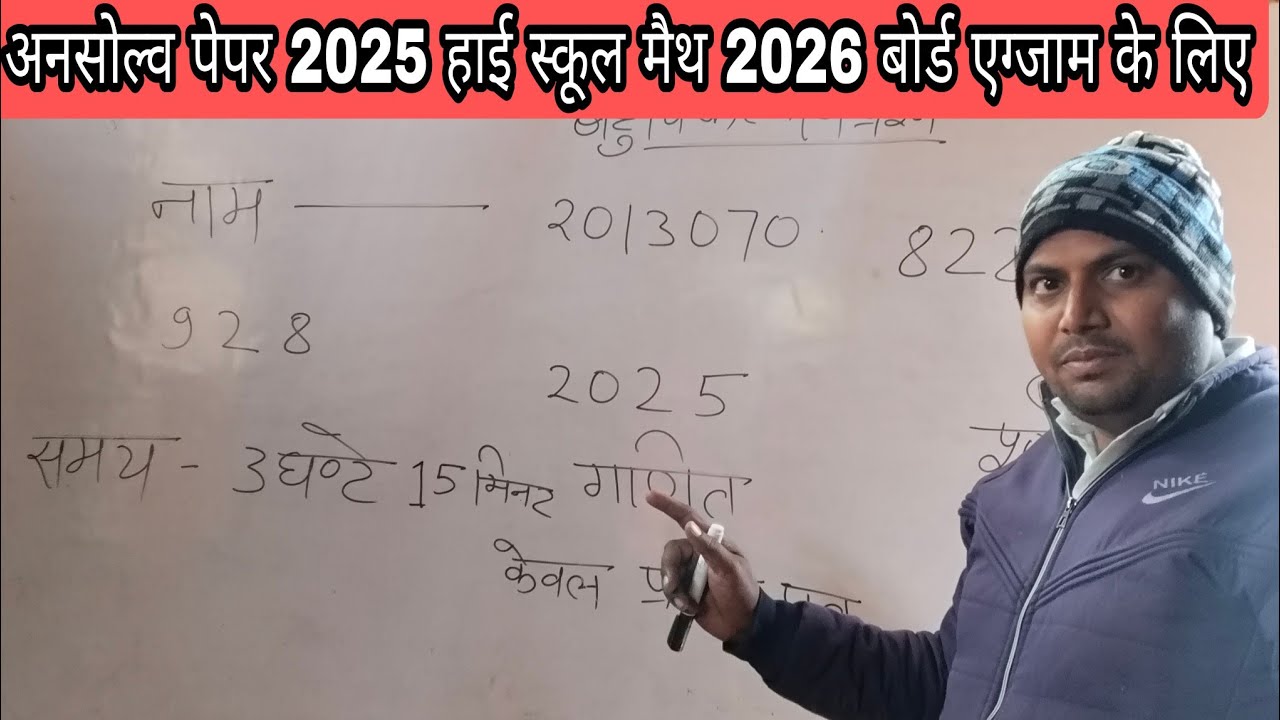 अनसोल्व पेपर 2025 हाई स्कूल मैथ 2026 बोर्ड एग्जाम के लिए
नाम 2013070 822
928
2025
समय - 3 घण्टे 15 मिनट गणित
केवल
NIKE